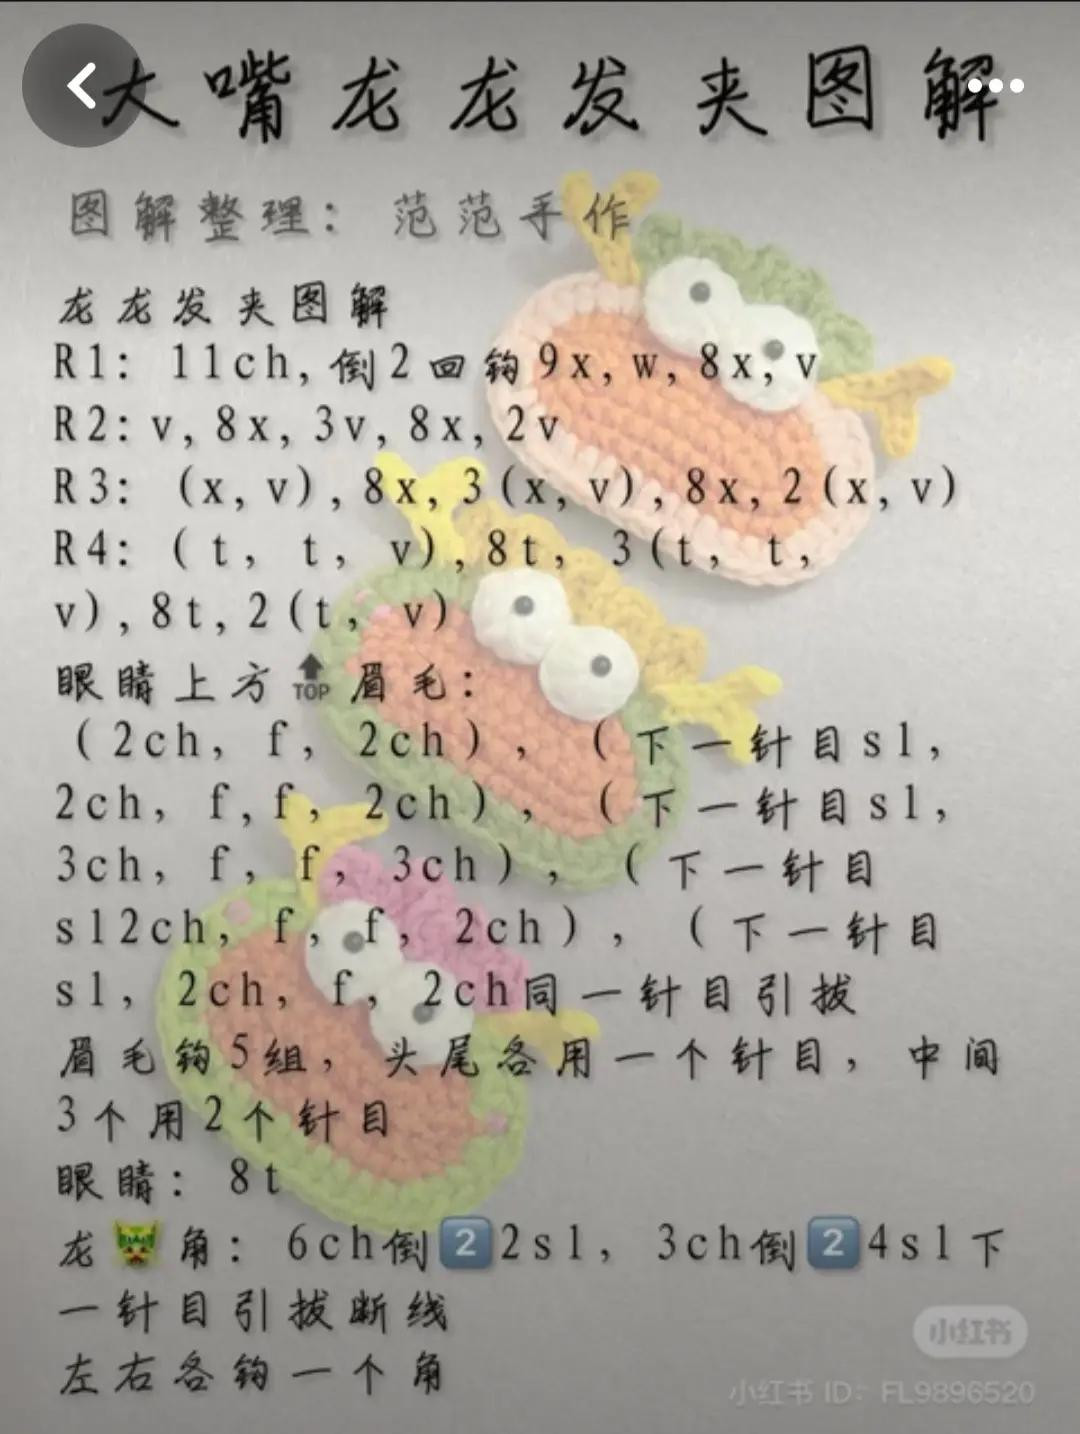 大嘴龙龙发夹图解
图解整理：范范手作
龙龙发夹图解
R1: 11ch,倒2回钩9x,w,8x,v
R2:v,8x,3v,8x,2v
R3: (x,v),8x,3(x,v),8x,2(x,v)
R4: (t, t, v),8t, 3(t, t,
v),8t,2(t, v)
眼睛上方🔝眉毛：
(2ch, f, 2ch), (下一针目sl,
2ch, f,f, 2ch), (下一针目sl,
3ch, f, f, 3ch), (下一针目
sl2ch, f, f, 2ch), (下一针目
sl, 2ch, f, 2ch同一针目引拔
眉毛钩5组，头尾各用一个针目，中间
3个用2个针目
眼睛：8t
龙🐲角：6ch倒2️⃣2sl, 3ch倒2️⃣4sl下
一针目引拔断线
左右各钩一个角
小红书
小红书 ID: FL9896520